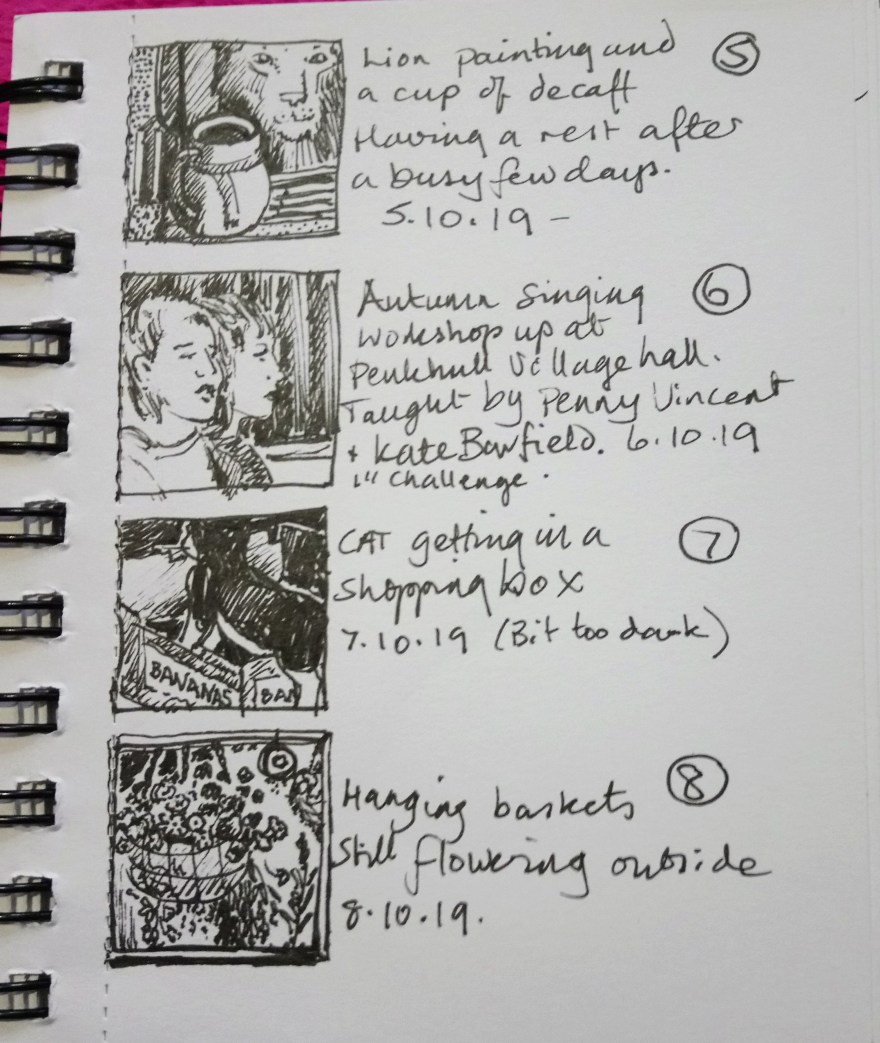 Lion painting and
⑤
a cup of decaff
Having a rest after
a busy few days.
5.10.19 –
Autumn Singing
⑥
workshop up at
Penkhull Village hall.
Taught by Penny Vincent
+ Kate Barfield. 6.10.19
1" challenge.
CAT getting in a
⑦
shopping box
7.10.19 (Bit too dark)
BANANAS
BAN
Hanging baskets
⑧
still flowering outside
8.10.19.